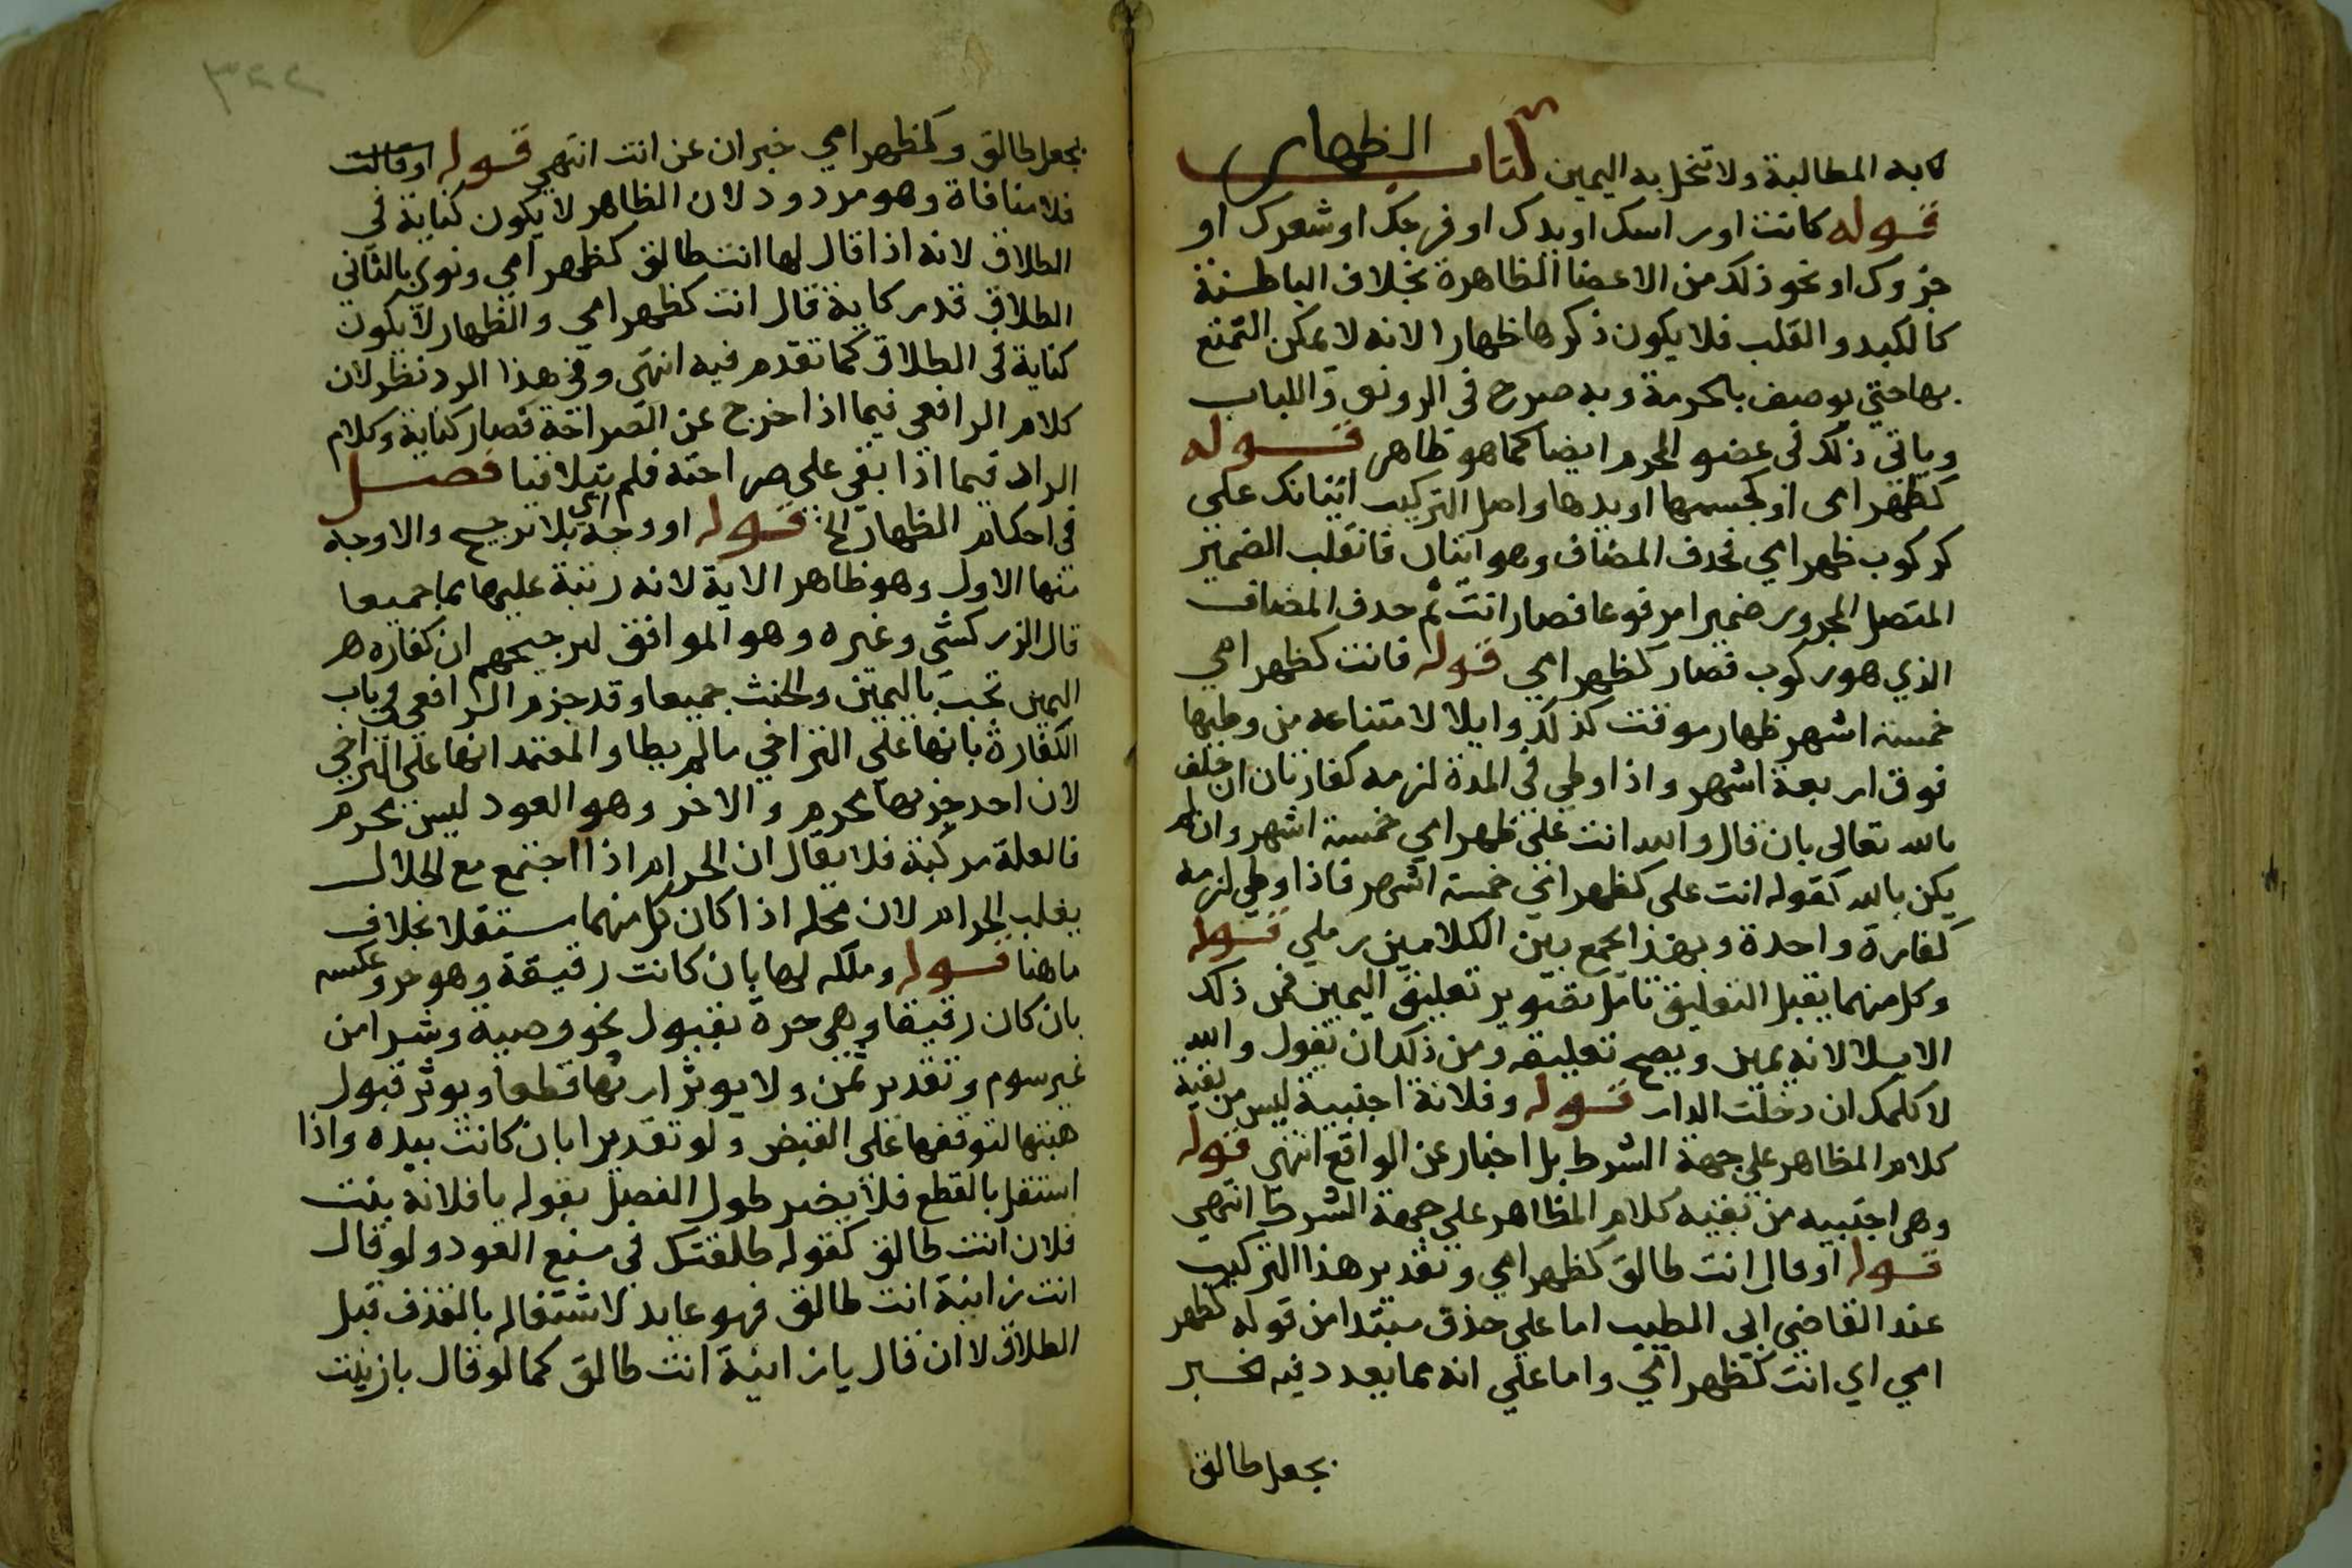 كابه المطالبة ولا تنحل به اليمين كتاب الظهار
قوله كانت او راسك او يدك او فرجك او شعرك او
جزوك او نحو ذلك من الاعضا الظاهرة بخلاف الباطنة
كالكبد والقلب فلا يكون ذكرها ظهارا لانه لا يمكن التمتع
بها حتي يوصف بالحرمة وبه صرح في الرونق واللباب
وياتي ذلك في عضو المحرم ايضا كما هو ظاهر قوله
كظهر امي او كجسمها او يدها واصل التركيب اتيانك علي
كركوب ظهر امي فحدف المضاف وهو اتيان فانقلب الضمير
المتصل المجرور ضميرا مرفوعا فصار انت ثم حدف المضاف
الذي هو ركوب فصار كظهر امي قوله فانت كظهر امي
خمسة اشهر ظهار موقت كذلك وايلا لامتناعه من وطيها
فوق اربعة اشهر واذا وطي في المدة لزمه كفارتان ان حلف
بالله تعالى بان قال والله انت علي ظهر امي خمسة اشهر وان لم
يكن بالله كقوله انت علي كظهر اختي خمسة اشهر فاذا وطي لزمه
كفارة واحدة وبهذا يجمع بين الكلامين رملي قوله
وكل منهما يقبل التعليق تامل بقتوير تعليق اليمين فمن ذلك
الايلا لانه يمين ويصح تعليقه ومن ذلك ان تقول والله
لا كلمك ان دخلت الدار قوله وفلانة اجنبية ليس من بقية
كلام المظاهر علي جهة الشرط بل اخبار عن الواقع انتهي قوله
وهي اجنبيه من بقيه كلام المظاهر علي جهة الشرط انتهي
قوله او قال انت طالق كظهر امي وتقدير هذا التركيب
عند القاضي ابي الطيب اما علي حذف مبتدا من قوله كظهر
امي اي انت كظهر امي واما علي انه مما يعدد فيه الخبر
بجعل طالق
بجعل طالق وكظهر امي خبران عن انت انتهي قوله او قالت
فلا منافاة وهو مردود لان الظاهر لا يكون كناية في
الطلاق لانه اذا قال لها انت طالق كظهر امي ونوي بالثاني
الطلاق قدر كاية قال انت كظهر امي والظهار لا يكون
كناية في الطلاق كما تقدم فيه انتهي وفي هذا الرد نظر لان
كلام الرافعي فيما اذا خرج عن الصراحة فصار كناية وكلام
الراد فيما اذا بقي علي صراحته فلم يتلاقيا فصل
في احكام الظهار الخ قوله او وجه اي بلا ترجيح والاوجه
منها الاول وهو ظاهر الاية لانه رتبة عليهما جميعا
قال الزركشي وغيره وهو الموافق لترجيحهم ان كفاره هر
اليمين تجب باليمين والحنث جميعا وقد جزم الرافعي في باب
الكفارة بانها علي التراخي مالم يطا والمعتمد انها علي التراخي
لان احد جزيها محرم والاخر وهو العود ليس بمحرم
فالعلة مركبة فلا يقال ان الحرام اذا اجتمع مع الحلال
يغلب الحرام لان محله اذا كان كل منهما مستقلا بخلاف
ما هنا قوله وملكه لها بان كانت رقيقة وهو حر وعكسه
بان كان رقيقا وهي حرة بقبول نحو وصية وشرا من
غير سوم وتقدير ثمن ولا يوثر ارثها قطعا ويوثر قبول
هبتها لتوقفها علي القبض ولو تقديرا بان كانت بيده واذا
استقل بالقطع فلا يضر طول الفصل بقوله يا فلانة بنت
فلان انت طالق كقوله طلقتك في منع العود ولو قال
انت زانية انت طالق فهو عايد لاشتغاله بالقذف قبل
الطلاق لا ان قال يا زانية انت طالق كما لو قال يا زينت